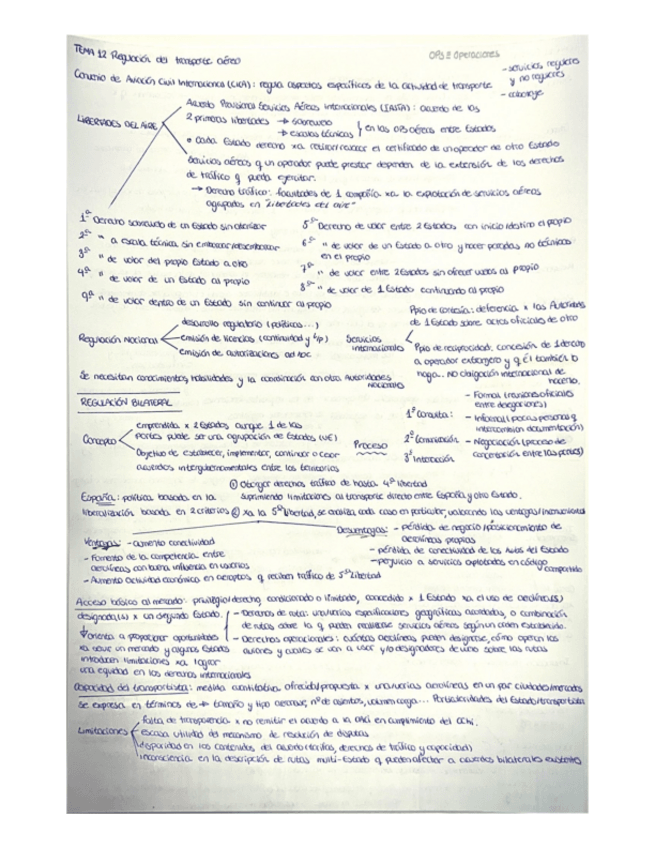 TEMA 12 Regulación del transporte aéreo
OPS II Operaciones
Convenio de Aviación Civil Internacional (CACI): regula aspectos específicos de la actividad de transporte
- servicios regulares y no regulares
- cabotaje
LIBERTADES DEL AIRE
Acuerdo Servicios Aéreos Internacionales (IASTA): acuerdo de las
2 primeras libertades → sobrevuelo
→ escalas técnicas
en las OPS aéreas entre Estados
• Cada Estado derecho xa el certificado de un operador de otro Estado
Servicios aéreos q un operador puede prestar dependen de la extensión de los derechos
de tráfico q pueda ejecutar.
→ Derecho tráfico: facultades de 1 compañía xa la explotación de servicios aéreos
agrupados en "libertades del aire"
1ª Derecho sobrevuelo de un Estado sin aterrizar
2ª " a escala técnica sin embarcar/desembarcar
3ª " de volar del propio Estado a otro
4ª " de volar de un Estado al propio
5ª Derecho de volar entre 2 Estados con inicio/destino el propio
6ª " de volar de un Estado a otro y hacer paradas no técnicas
en el propio
7ª " de volar entre 2 Estados sin ofrecer vuelos al propio
8ª " de volar de 1 Estado continuando al propio
9ª " de volar dentro de un Estado sin continuar al propio
Regulación Nacional
desarrollo regulatorio (políticas...)
emisión de licencias (continuidad y t/p)
emisión de autorizaciones ad hoc
Servicios
internacionales
Ppio de cortesía: deferencia x las Autoridades
de 1 Estado sobre actos oficiales de otro
Ppio de reciprocidad: concesión de 1 derecho
a operador extranjero y q él también lo
haga. No obligación internacional de
hacerlo.
Se necesitan conocimientos, habilidades y la coordinación con otra Autoridades
nacionales
REGULACIÓN BILATERAL
Concepto
emprendida x 2 Estados aunque 1 de las
partes puede ser una agrupación de Estados (UE)
Objetivo de establecer, implementar, continuar o cesar
acuerdos intergubernamentales entre los territorios
Proceso
1º Consulta:
- Formal (reuniones oficiales
entre delegaciones)
- Informal (pocas personas q
intercambian documentación)
2º
- Negociación (proceso de
concertación entre las partes)
3º
España: política basada en la
liberalización basada en 2 criterios
① Otorgar derechos tráfico de hasta 4ª libertad
suprimiendo limitaciones al transporte directo entre España y otro Estado.
② Xa la 5ª libertad, se analiza cada caso en particular, valorando las ventajas/inconvenientes
Ventajas: - aumento conectividad
- Fomento de la competencia entre
aerolíneas con buena influencia en usuarios
- Aumento actividad económica en aeroptos q reciben tráfico de 5ª libertad
Desventajas: - pérdida de negocio/posicionamiento de
aerolíneas propias
- pérdida de conectividad de los Aptos del Estado
- perjuicio a servicios explotados en código
compartido
Acceso básico al mercado: privilegio/derecho, condicionado o limitado, concedido x 1 Estado xa el uso de aerolínea(s)
designada(s) x un segundo Estado.
↓ orienta a proporcionar oportunidades
xa servir un mercado y algunos Estados
introducen limitaciones xa lograr
una equidad en los derechos internacionales
- Derechos de ruta: una/varias especificaciones geográficas acordadas, o combinación
de rutas sobre la q pueden realizarse servicios aéreos según un orden establecido.
- Derechos operacionales: cuántas aerolíneas pueden designarse, cómo operan los
aviones y cuáles se van a usar y/o designadores de vuelo sobre las rutas
Capacidad del transportista: medida cuantitativa ofrecida/propuesta x una/varias aerolíneas en un par ciudades/mercados
Se expresa en términos de → tamaño y tipo aeronave, nº de asientos, volumen carga... Particularidades del Estado/transportista
Limitaciones
falta de transparencia x no remitir el acuerdo a la OACI en cumplimiento del
escasa utilidad del mecanismo de resolución de disputas
disparidad en los contenidos del acuerdo (tarifas, derechos de tráfico y capacidad)
inconsistencia en la descripción de rutas multi-Estado q pueden afectar a acuerdos bilaterales existentes